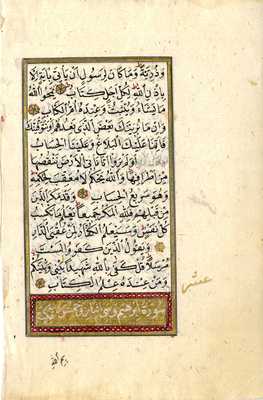 وَذُرِّيَّةً وَمَا كَانَ لِرَسُولٍ اَنْ يَأْتِيَ بِاٰيَةٍ اِلَّا
بِاِذْنِ اللّٰهِ لِكُلِّ اَجَلٍ كِتَابٌ يَمْحُو اللّٰهُ
مَا يَشَاءُ وَيُثْبِتُ وَعِنْدَهُ اُمُّ الْكِتَابِ
وَاِنْ مَا نُرِيَنَّكَ بَعْضَ الَّذِي نَعِدُهُمْ اَوْ نَتَوَفَّيَنَّكَ
فَاِنَّمَا عَلَيْكَ الْبَلَاغُ وَعَلَيْنَا الْحِسَابُ
اَوَلَمْ يَرَوْا اَنَّا نَأْتِي الْاَرْضَ نَنْقُصُهَا
مِنْ اَطْرَافِهَا وَاللّٰهُ يَحْكُمُ لَا مُعَقِّبَ لِحُكْمِهِ
وَهُوَ سَرِيعُ الْحِسَابِ وَقَدْ مَكَرَ الَّذِينَ
مِنْ قَبْلِهِمْ فَلِلّٰهِ الْمَكْرُ جَمِيعًا يَعْلَمُ مَا تَكْسِبُ
كُلُّ نَفْسٍ وَسَيَعْلَمُ الْكُفَّارُ لِمَنْ عُقْبَى الدَّارِ
وَيَقُولُ الَّذِينَ كَفَرُوا لَسْتَ
مُرْسَلًا قُلْ كَفٰى بِاللّٰهِ شَهِيدًا بَيْنِي وَبَيْنَكُمْ
وَمَنْ عِنْدَهُ عِلْمُ الْكِتَابِ
عشر
سورة ابرهيم وهي